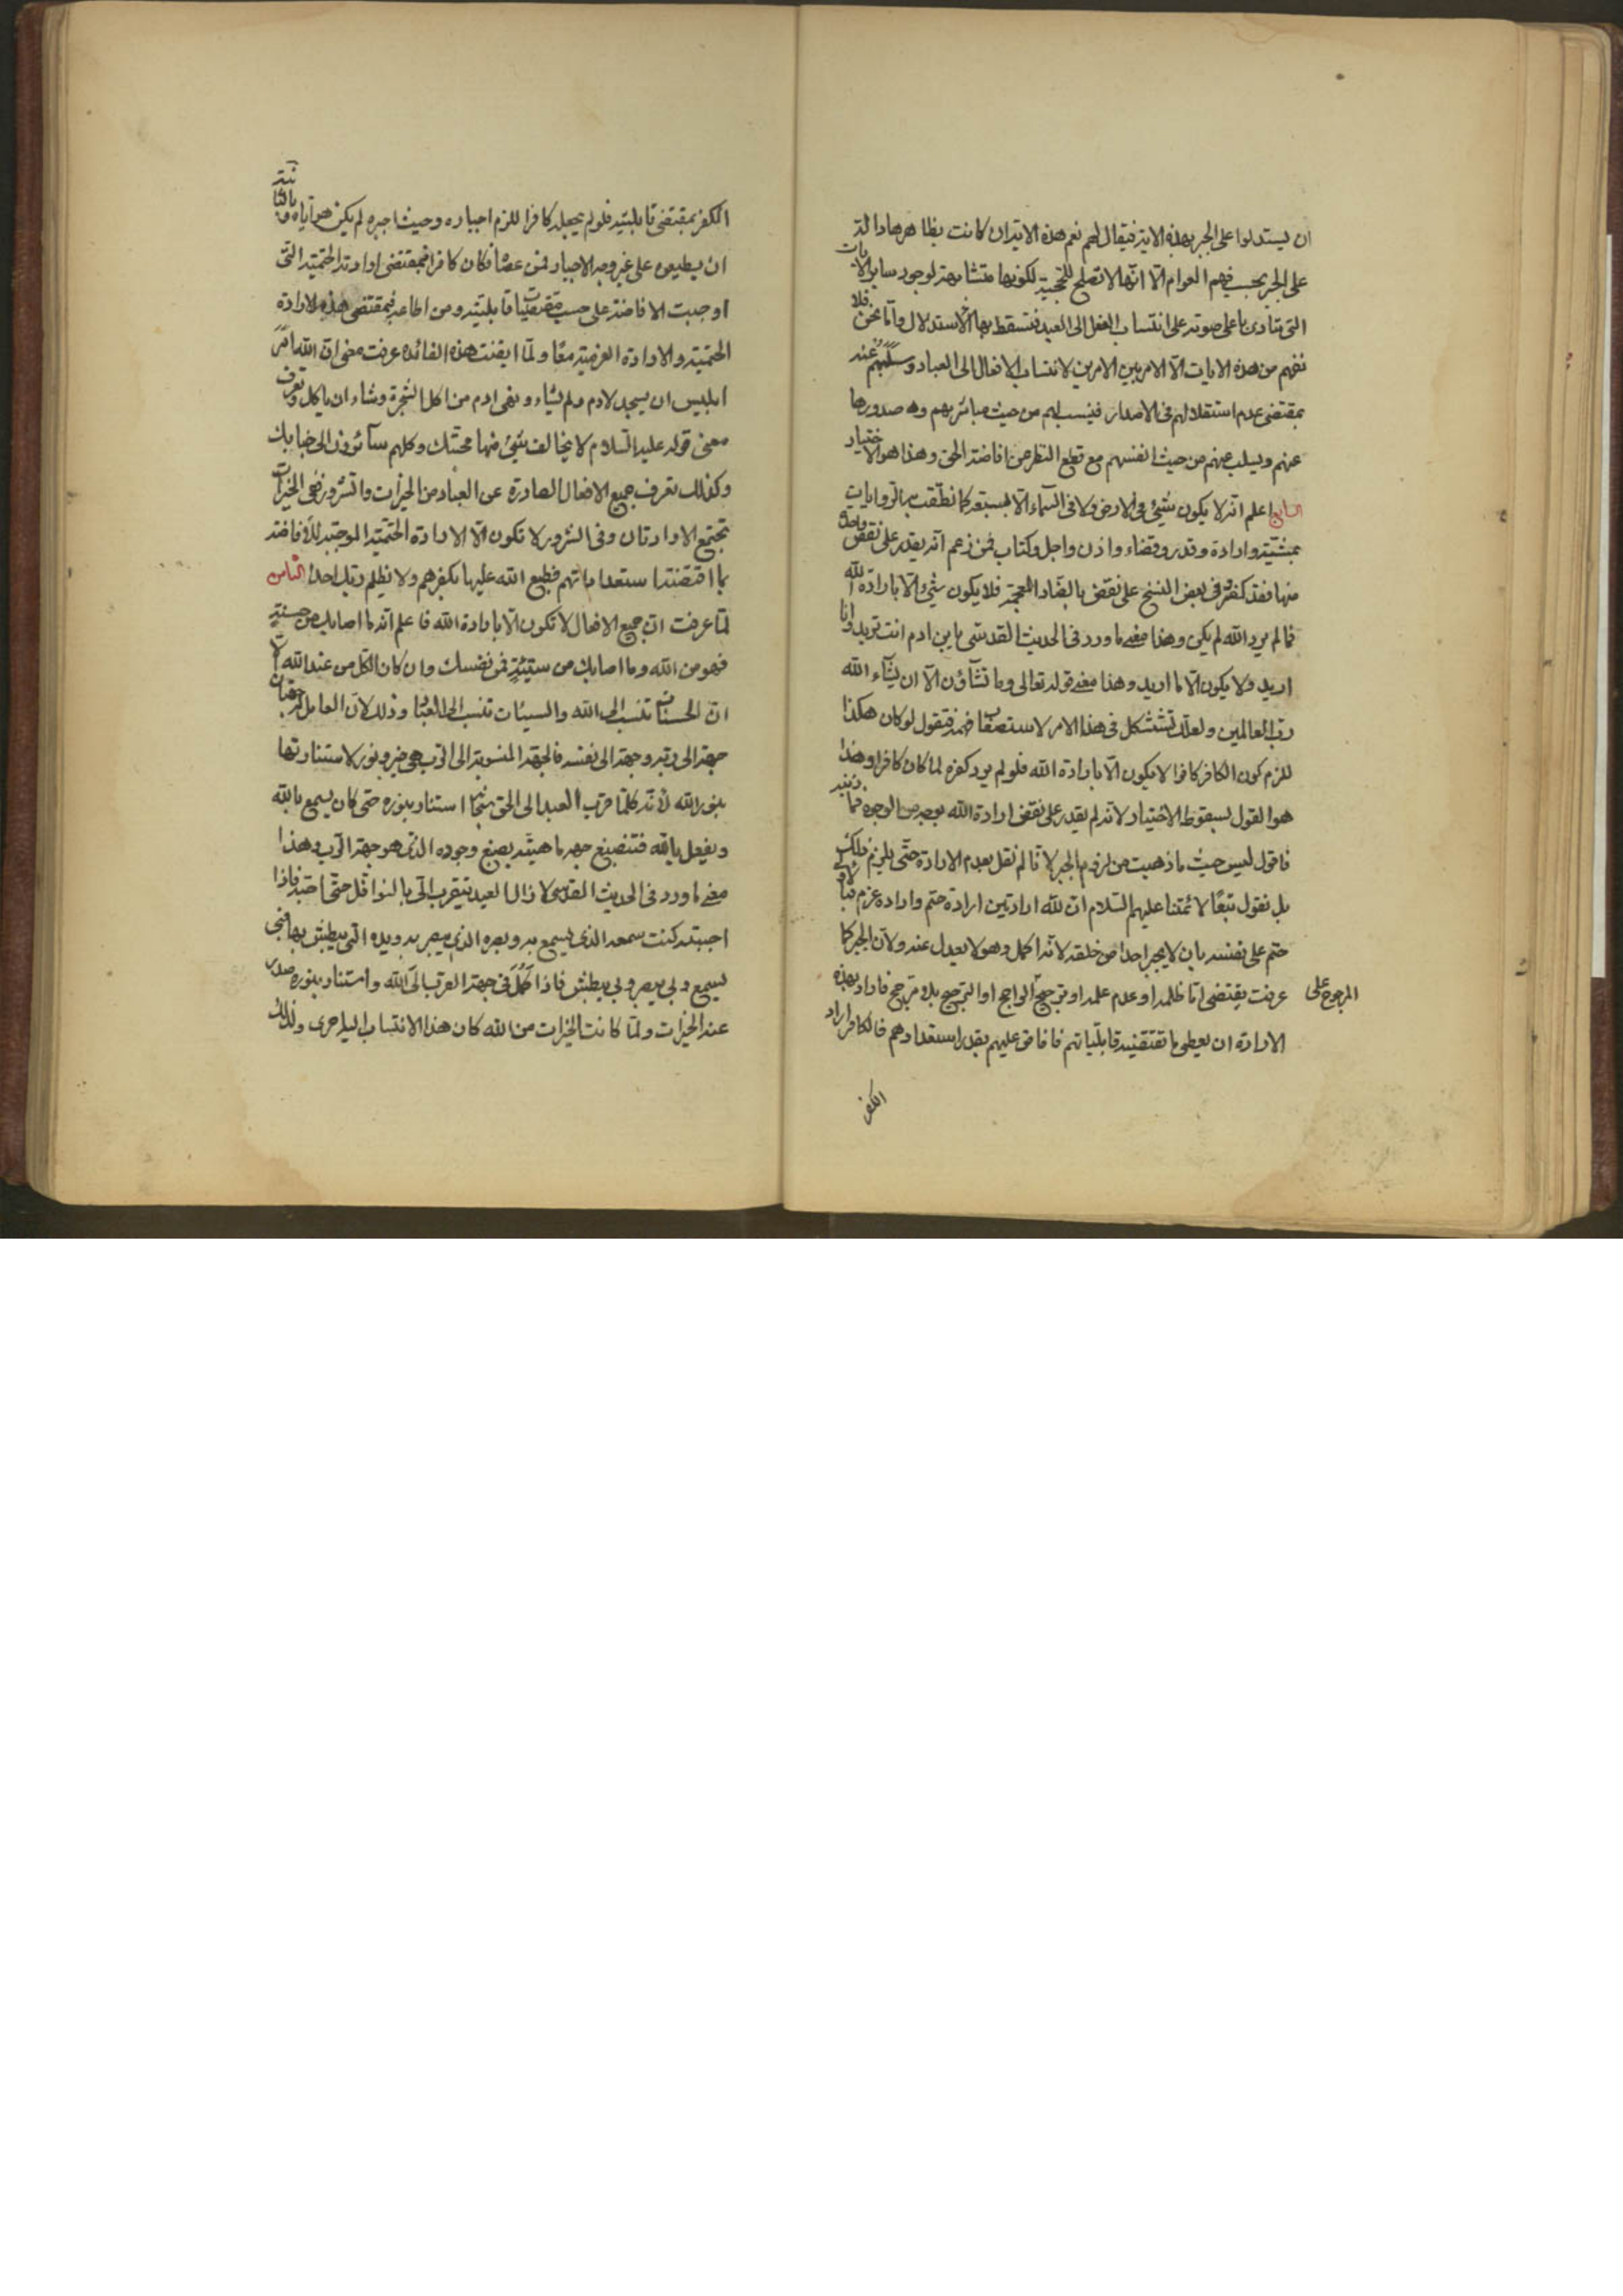 ان يستدلوا على الجبر بهذه الاية فيقال لهم نعم هذه الاية ان كانت بظاهرها دالة
على الجبر بحسب فهم العوام الا انها لا تصلح للحجية لكونها متشابهة لوجود ساير الايات
التى تنادى باعلى صوته على انتساب الفعل الى العبد فتسقط بها الاستدلال واما نحن فلا
نفهم من هذه الايات الا الامر بين الامرين لانتساب الافعال الى العباد وسلبهم عنه
بمقتضى عدم استقلالهم فى الاصدار فينسب لهم من حيث مباشرتهم وصدورها
عنهم ويسلب عنهم من حيث انفسهم مع قطع النظر عن افاضة الحق وهذا هو الاختيار
السابع اعلم انه لا يكون شيئ فى الارض ولا فى السماء الا بسبعة كما نطقت به الروايات
بمشية وارادة وقدر وقضاء واذن واجل وكتاب فمن زعم انه يقدر على نقص واحدة
منها فقد كفر وفى بعض النسخ على نقض بالضاد المعجمة فلا يكون شيئ الا بارادة الله
فما لم يرد الله لم يكن وهذا معنى ما ورد فى الحديث القدسى يابن ادم انت تريد وانا
اريد ولا يكون الا ما اريد وهذا معنى قوله تعالى وما تشاؤن الا ان يشاء الله
رب العالمين ولعلك تستشكل فى هذا الامر لاستصعاب فهمه فتقول لو كان هكذا
للزم كون الكافر كافرا لا يكون الا بارادة الله فلو لم يرد كفره لما كان كافرا وهذا
هو القول بسقوط الاختيار لانه لم يقدر على نقض ارادة الله بوجه من الوجوه
فاقول ليس حيث ما ذهبت من لزوم الجبر لانا لم نقل بعدم الارادة حتى يلزم ذلك
بل نقول تبعا لائمتنا عليهم السلام ان لله ارادتين ارادة حتم وارادة عزم
حتم على نفسه بان لا يجبر احدا من خلقه لانه اكمل وهو لا يعدل عنه ولان الجبر كما
عرفت يقتضى اما ظلمه او عدم علمه او ترجيح الراجح او الترجيح بلا مرجح فاراد بهذه
المرجوح على
الارادة ان يعطى ما تقتضيه قابلياتهم فافاض عليهم بقدر استعدادهم فالكافر اراد
الكفر
الكفر بمقتضى قابليته فلو لم يجعله كافرا للزم اجباره وحيث اجبره لم يكن هو اياه
ان يطيعوه على غير وجه الاجبار فمن عصاه فكان كافرا فبمقتضى ارادته الحتمية التى
اوجبت الافاضة على حسب مقتضيات قابليته ومن اطاعه فبمقتضى هذه الارادة
الحتمية والارادة العزمية معا ولما ايقنت هذه الفائدة عرفت معنى ان الله امر
ابليس ان يسجد لادم ولم يشاء ونهى ادم من اكل الشجرة وشاء ان ياكل وتعرف
معنى قوله عليه السلام لا يخالف شيئ منها محبتك وكلهم سائرون الى جنابك
وكذلك تعرف جميع الافعال الصادرة عن العباد من الخيرات والشرور ففى الخيرات
تجتمع الارادتان وفى الشرور لا تكون الا الارادة الحتمية الموجبة للافاضة
بما اقتضته استعداداتهم فطبع الله عليها بكفرهم ولا يظلم ربك احدا الثامن
لما عرفت ان جميع الافعال لا تكون الا بارادة الله فاعلم انه ما اصابك من حسنة
فهو من الله وما اصابك من سيئة فمن نفسك وان كان الكل من عند الله الا
ان الحسنات تنسب الى الله والسيئات تنسب الى العباد وذلك لان العامل له جهتان
جهة الى ربه وجهة الى نفسه فالجهة المنسوبة الى الرب هى خير ونور لاستنارتها
بنور الله لانه كلما قرب العبد الى الحق استنار بنوره حتى كان يسمع بالله
ويفعل بالله فتنصبغ جهة ماهيته بصبغ وجوده الذى هو جهة الرب وهذا
معنى ما ورد فى الحديث القدسى لا زال العبد يتقرب الى بالنوافل حتى احبه فاذا
احببته كنت سمعه الذى يسمع به وبصره الذى يبصر به ويده التى يبطش بها فبى
يسمع وبى يبصر وبى يبطش فاذا كمل فى جهة القرب الى الله واستنار بنوره صدر
عنه الخيرات ولما كانت الخيرات من الله كان هذا الانتساب اليه احرى ولذلك